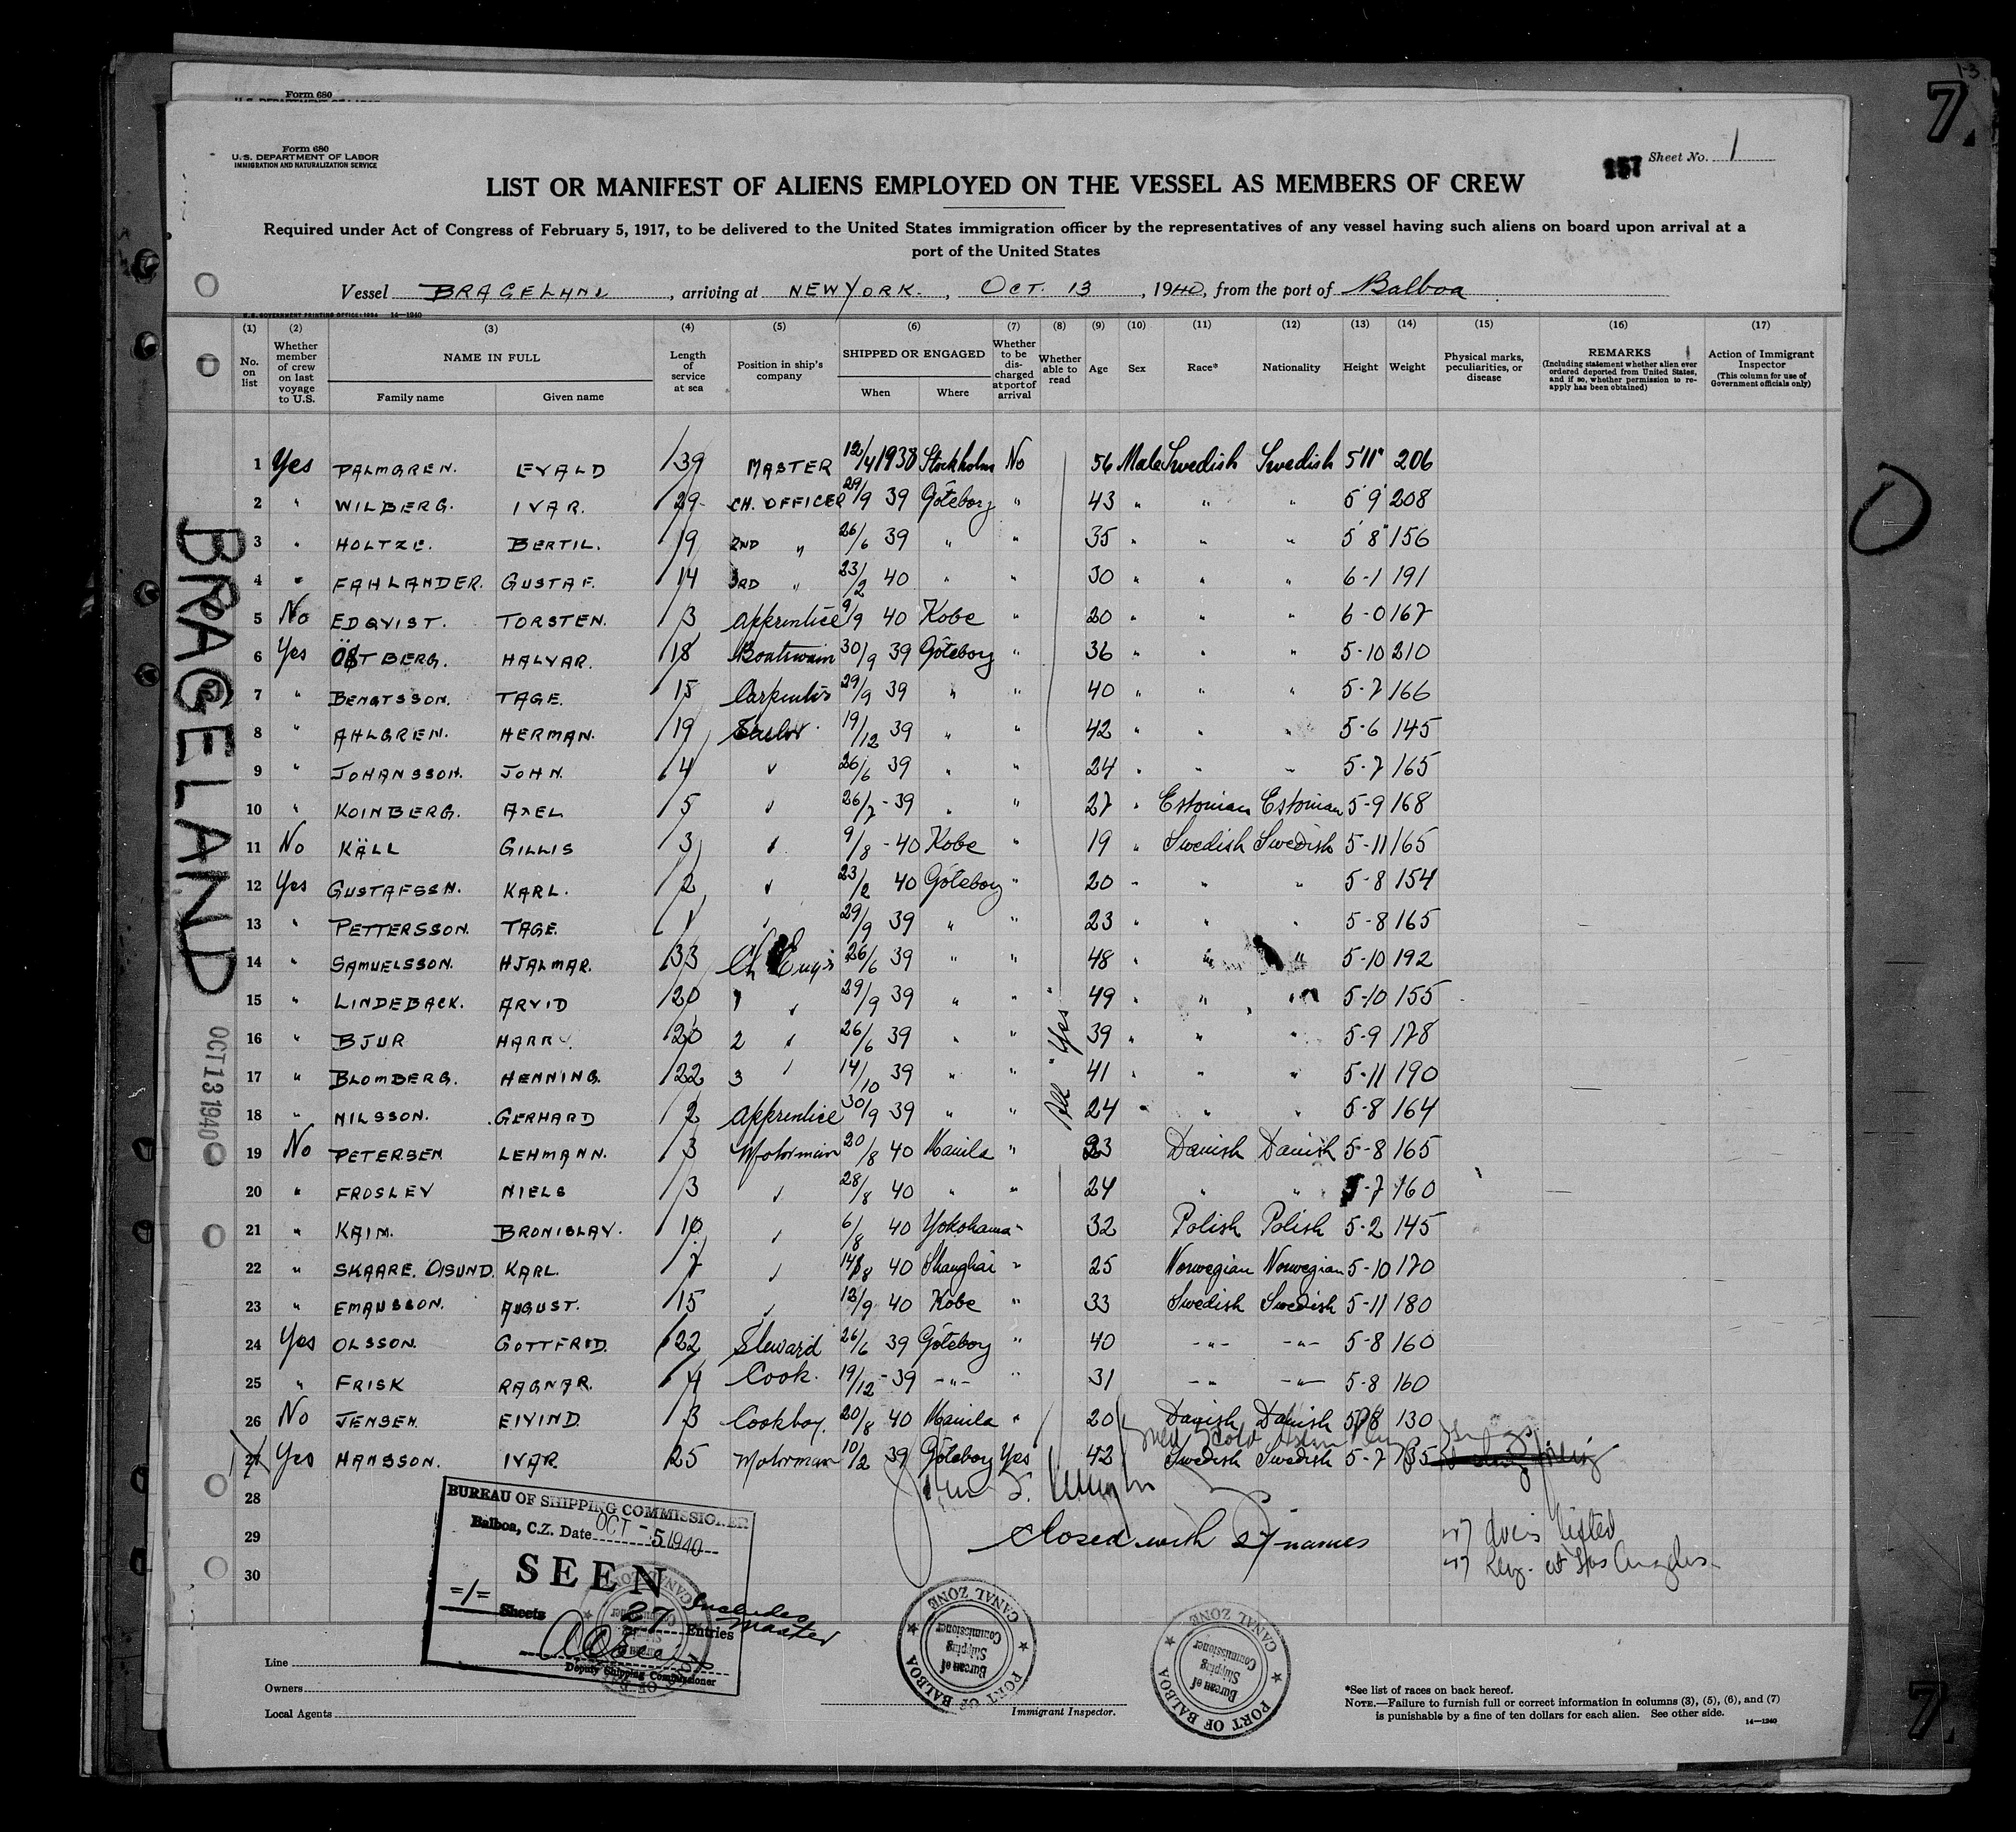 13
7.
Form 680
Form 680
U.S. DEPARTMENT OF LABOR
IMMIGRATION AND NATURALIZATION SERVICE
157 Sheet No. 1
LIST OR MANIFEST OF ALIENS EMPLOYED ON THE VESSEL AS MEMBERS OF CREW
Required under Act of Congress of February 5, 1917, to be delivered to the United States immigration officer by the representatives of any vessel having such aliens on board upon arrival at a
port of the United States
Vessel BRAGELAND, arriving at NEW YORK., OCT. 13, 1940, from the port of Balboa
U.S. GOVERNMENT PRINTING OFFICE: 1934 14—1240
(1) (2) (3) (4) (5) (6) (7) (8) (9) (10) (11) (12) (13) (14) (15) (16) (17)
No. on list
Whether member of crew on last voyage to U.S.
NAME IN FULL
Family name Given name
Length of service at sea
Position in ship's company
SHIPPED OR ENGAGED
When Where
Whether to be discharged at port of arrival
Whether able to read
Age
Sex
Race*
Nationality
Height
Weight
Physical marks, peculiarities, or disease
REMARKS
(Including statement whether alien ever ordered deported from United States, and if so, whether permission to re-apply has been obtained)
Action of Immigrant Inspector
(This column for use of Government officials only)
1 Yes PALMGREN. EVALD 39 MASTER 12/4 1938 Stockholm No 56 Male Swedish Swedish 5'11" 206
2 " WILBERG. IVAR. 29 CH. OFFICER 29/9 39 Göteborg " 43 " " " 5'9' 208
3 " HOLTZE. BERTIL. 19 2ND " 26/6 39 " " 35 " " " 5'8" 156
4 " FAHLANDER. GUSTAF. 14 3RD " 23/2 40 " " 30 " " " 6-1 191
5 No EDQVIST. TORSTEN. 3 apprentice 9/9 40 Kobe " 20 " " " 6-0 167
6 Yes ÖSTBERG. HALVAR. 18 Boatswain 30/9 39 Göteborg " 36 " " " 5-10 210
7 " BENGTSSON. TAGE. 15 Carpenter 29/9 39 " " 40 " " " 5-7 166
8 " AHLGREN. HERMAN. 19 Sailor 19/12 39 " " 42 " " " 5-6 145
9 " JOHANSSON. JOHN. 4 " 26/6 39 " " 24 " " " 5-7 165
10 " KOINBERG. AXEL 5 " 26/7 - 39 " " 27 " Estonian Estonian 5-9 168
11 No KÄLL GILLIS 3 " 9/8 - 40 Kobe " 19 " Swedish Swedish 5-11 165
12 Yes GUSTAFSSN. KARL. 2 " 23/2 40 Göteborg " 20 " " " 5-8 154
13 " PETTERSSON. TAGE. 1 " 29/9 39 " " 23 " " " 5-8 165
14 " SAMUELSSON. HJALMAR. 33 Ch Eng's 26/6 39 " " 48 " " " 5-10 192
15 " LINDEBACK. ARVID 20 1 " 29/9 39 " " 49 " " " 5-10 155
16 " BJUR HARRY. 20 2 " 26/6 39 " " 39 " " " 5-9 178
17 " BLOMBERG. HENNING. 22 3 " 14/10 39 " " 41 " " " 5-11 190
18 " NILSSON. GERHARD 2 apprentice 30/9 39 " " 24 " " " 5-8 164
19 No PETERSEN LEHMANN. 3 Motorman 20/8 40 Manila " 23 Danish Danish 5-8 165
20 " FROSLEV NIELS 3 " 28/8 40 " " 24 " " 5-7 160
21 " KAIM. BRONISLAV. 10 " 6/8 40 Yokohama " 32 Polish Polish 5-2 145
22 " SKAARE. OISUND. KARL. 7 " 14/8 40 Shanghai " 25 Norwegian Norwegian 5-10 170
23 " EMANSSON. AUGUST. 15 " 12/9 40 Kobe " 33 Swedish Swedish 5-11 180
24 Yes OLSSON. GOTTFRID. 22 Steward 26/6 39 Göteborg " 40 -"- -"- 5-8 160
25 " FRISK RAGNAR. 4 Cook. 19/12 - 39 -"- " 31 -"- -"- 5-8 160
26 No JENSEN. EIVIND. 3 Cookboy. 20/8 40 Manila " 20 Danish Danish 5-8 130
27 Yes HANSSON. IVAR. 25 Motorman 10/2 39 Göteborg Yes 42 Swedish Swedish 5-7
28
29
30
All "Yes"
Closed with 27 names
listed
at Los Angeles
BRAGELAND
OCT 13 1940
BUREAU OF SHIPPING COMMISSIONER
Balboa, C.Z. Date OCT - 5 1940
SEEN
=1= Sheets 27 Entries Includes Master
Deputy Shipping Commissioner
CANAL ZONE
Bureau of Shipping Commissioner
PORT OF BALBOA
CANAL ZONE
Bureau of Shipping Commissioner
PORT OF BALBOA
Line
Owners
Local Agents
Immigrant Inspector.
*See list of races on back hereof.
NOTE.—Failure to furnish full or correct information in columns (3), (5), (6), and (7)
is punishable by a fine of ten dollars for each alien. See other side.
14—1240
7.